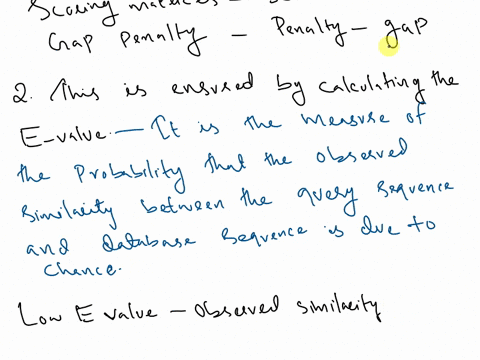 Scoring matrices -
Gap Penalty - Penalty - gap
2. This is ensured by calculating the
E-value. - It is the measure of
the Probability that the observed
similarity between the query sequence
and database sequence is due to
chance.
Low E value - observed similarity